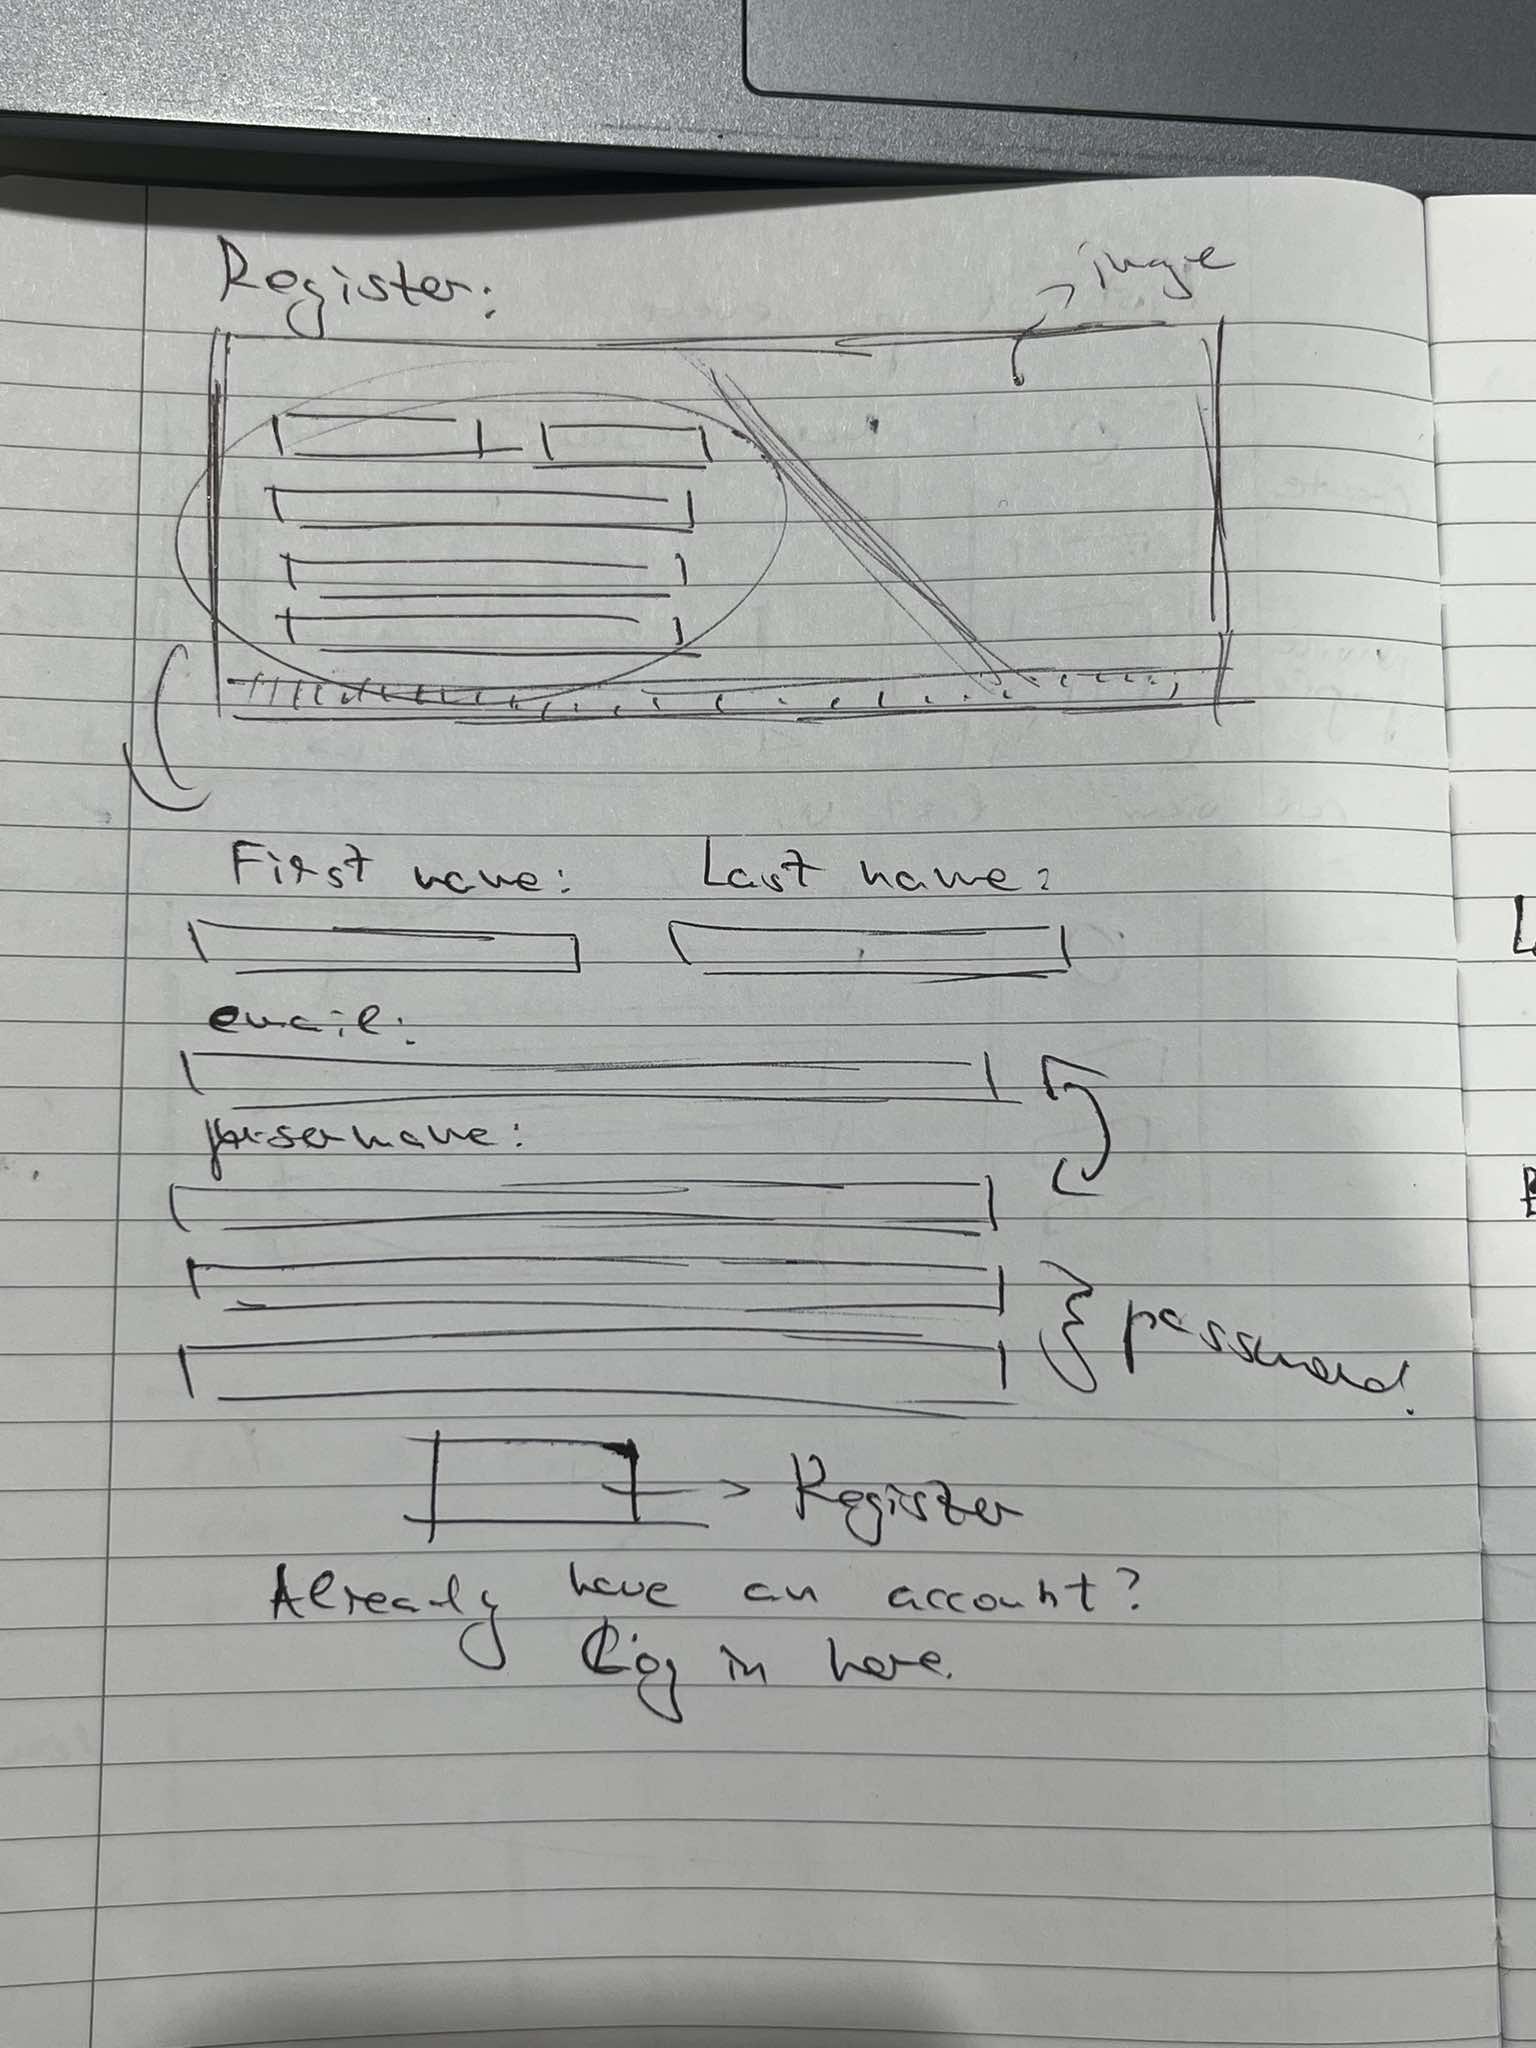 Register:
image
First name:
Last name:
email:
username:
password.
Register
Already have an account?
Log in here.
L